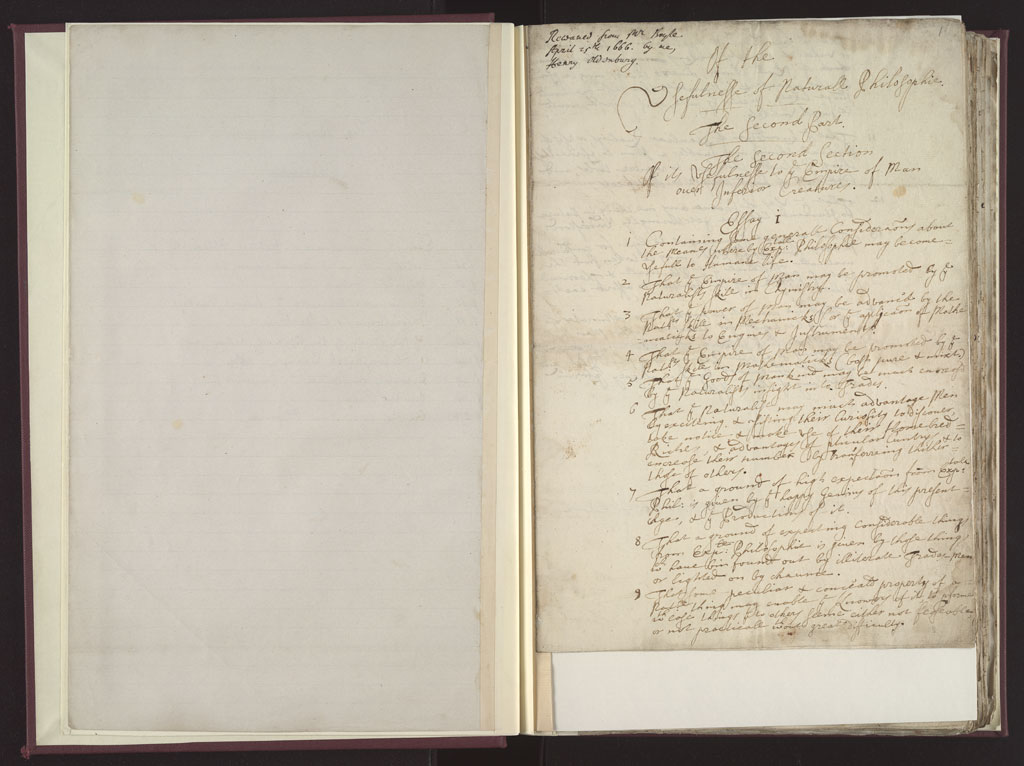 Receaued from Mr Boyle
April 25th 1666. by me,
Henry Oldenburg.
1
Of the
Usefulnesse of Naturall Philosophie.
The Second Part.
The Second Section
Of its Usefulnesse to ye Empire of Man
over Inferior Creatures.
Essay 1
1 Containing some generall Considerations about
the Meanes whereby Expll: Philosophie may become
Usefull to Humane life.
2 That ye Empire of Man may be promoted by ye
Naturalists skill in Chymistry.
3 That ye power of man may be advanced by the
Natlsts skill in Mechanicks, or ye application of Mathe
maticks to Engines & Instruments.
4 That ye Empire of Man may be promoted by ye
Natlsts skill in Mathematicks (both pure & mixt)
5 That ye Goods of Mankind may be much encreas'd
by ye Naturalists insight into Trades.
6 That ye Naturalist may much advantage Men
by exciting, & assisting their Curiosity to discover,
take notice, & make Use of their Home-bred
Riches, & advantages of particular Countrys, & to
encrease their number by transferring thither
those of others.
7 That a ground of high expectation from Exp:
Phil: is given by ye happy Genius of this present
Age, & ye Productions of it.
8 That a ground of expecting Considerable things
from Exp: Philosophie is given by those things
wch have bin found out by illiterate Tradesmen
or lighted on by chaunce.
9 That some peculiar & conceal'd property of a
thing may enable ye Knower of it to performe
wth ease things yt to others seeme either not feasible,
or not practicable wthout great difficulty.